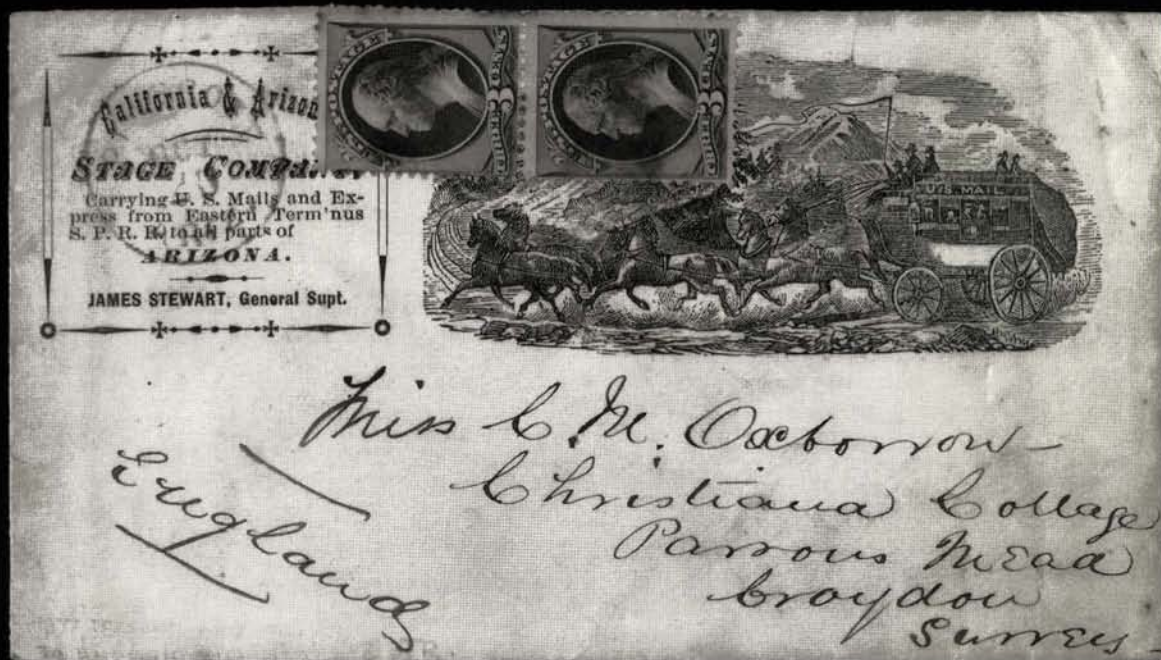 California & Arizon
STAGE COMPAN
Carrying U. S. Mails and Ex-
press from Eastern Term'nus
S. P. R. R. to all parts of
ARIZONA.
JAMES STEWART, General Supt.
POSTAGE
3
CENTS
POSTAGE
3
CENTS
U.S. MAIL
Miss C. M. Oxborrow
Christiana Cottage
Parsons Mead
Croydon
Surrey
England